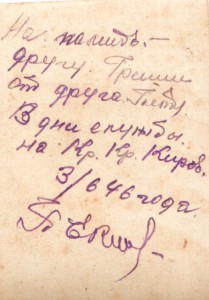 На память.-
другу. Грише
от друга. Пети
В дни службы
на Кр. Кр. Киров.
3/6 46 года.